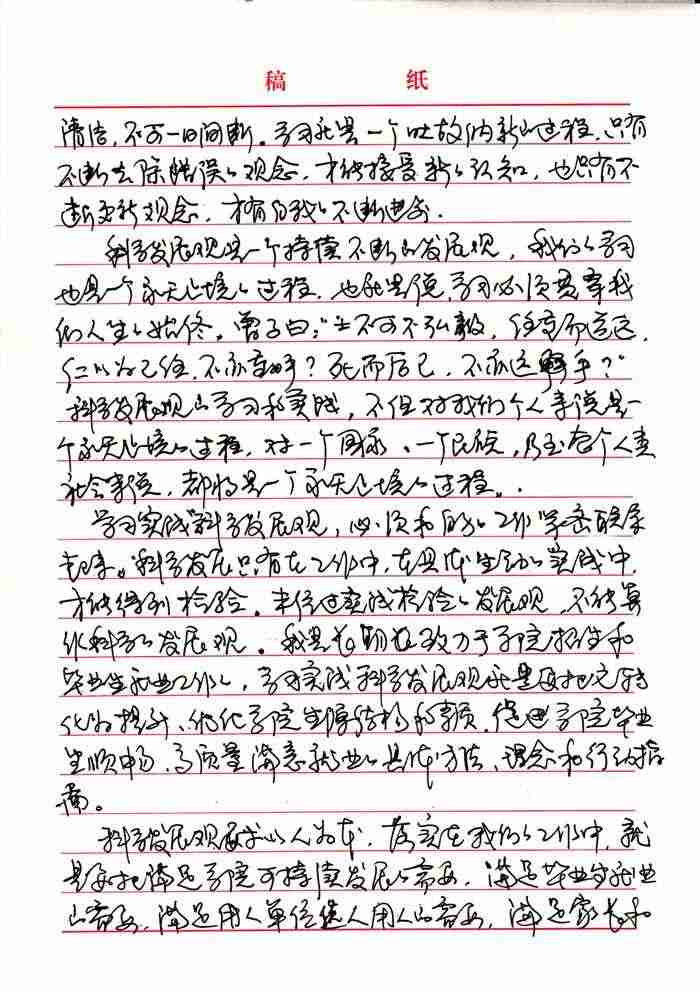 稿 纸
清洁，不可一日间断。学习就是一个吐故纳新的过程，只有
不断去除错误的观念，才能接受新的认知，也只有不
断更新观念，才有自我的不断进步。
科学发展观是一个持续不断的发展观，我们的学习
也是一个永无止境的过程，也就是说，学习必须贯穿我
们人生的始终。曾子曰：“士不可不弘毅，任重而道远，
仁以为己任，不亦重乎？死而后已，不亦远乎？”
科学发展观的学习和实践，不但对我们个人来说是一
个永无止境的过程，对一个国家、一个民族，乃至整个人类
社会来说，都将是一个永无止境的过程。
学习实践科学发展观，必须和自的工作学 联系
起来。科学发展只有在工作中，在具体生动的实践中，
才能得到检验。未经过实践检验的发展观，不能算
作科学的发展观。我是长期致力于学院招生和
毕业生就业工作的，学习实践科学发展观就是要把它转
化为提升、优化学院生源结构和素质，促进学院毕业
生顺畅、高质量满意就业的具体方法、理念和行动指
南。
科学发展观要求以人为本，落实在我们的工作中，就
是要把满足学院可持续发展的需要，满足毕业生就业
的需要，满足用人单位选人用人的需要，满足家长和